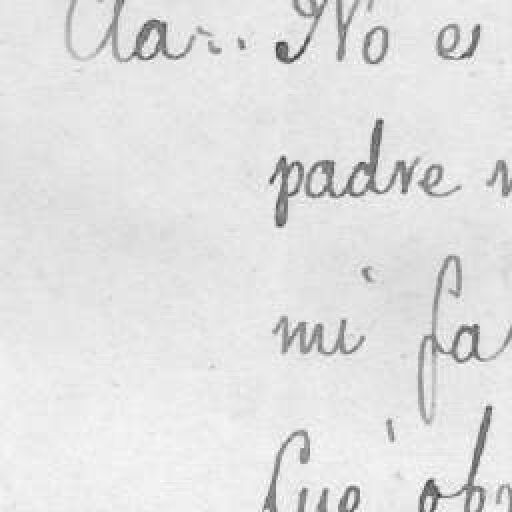 Cla... No es
padre
mi fa
Que ob